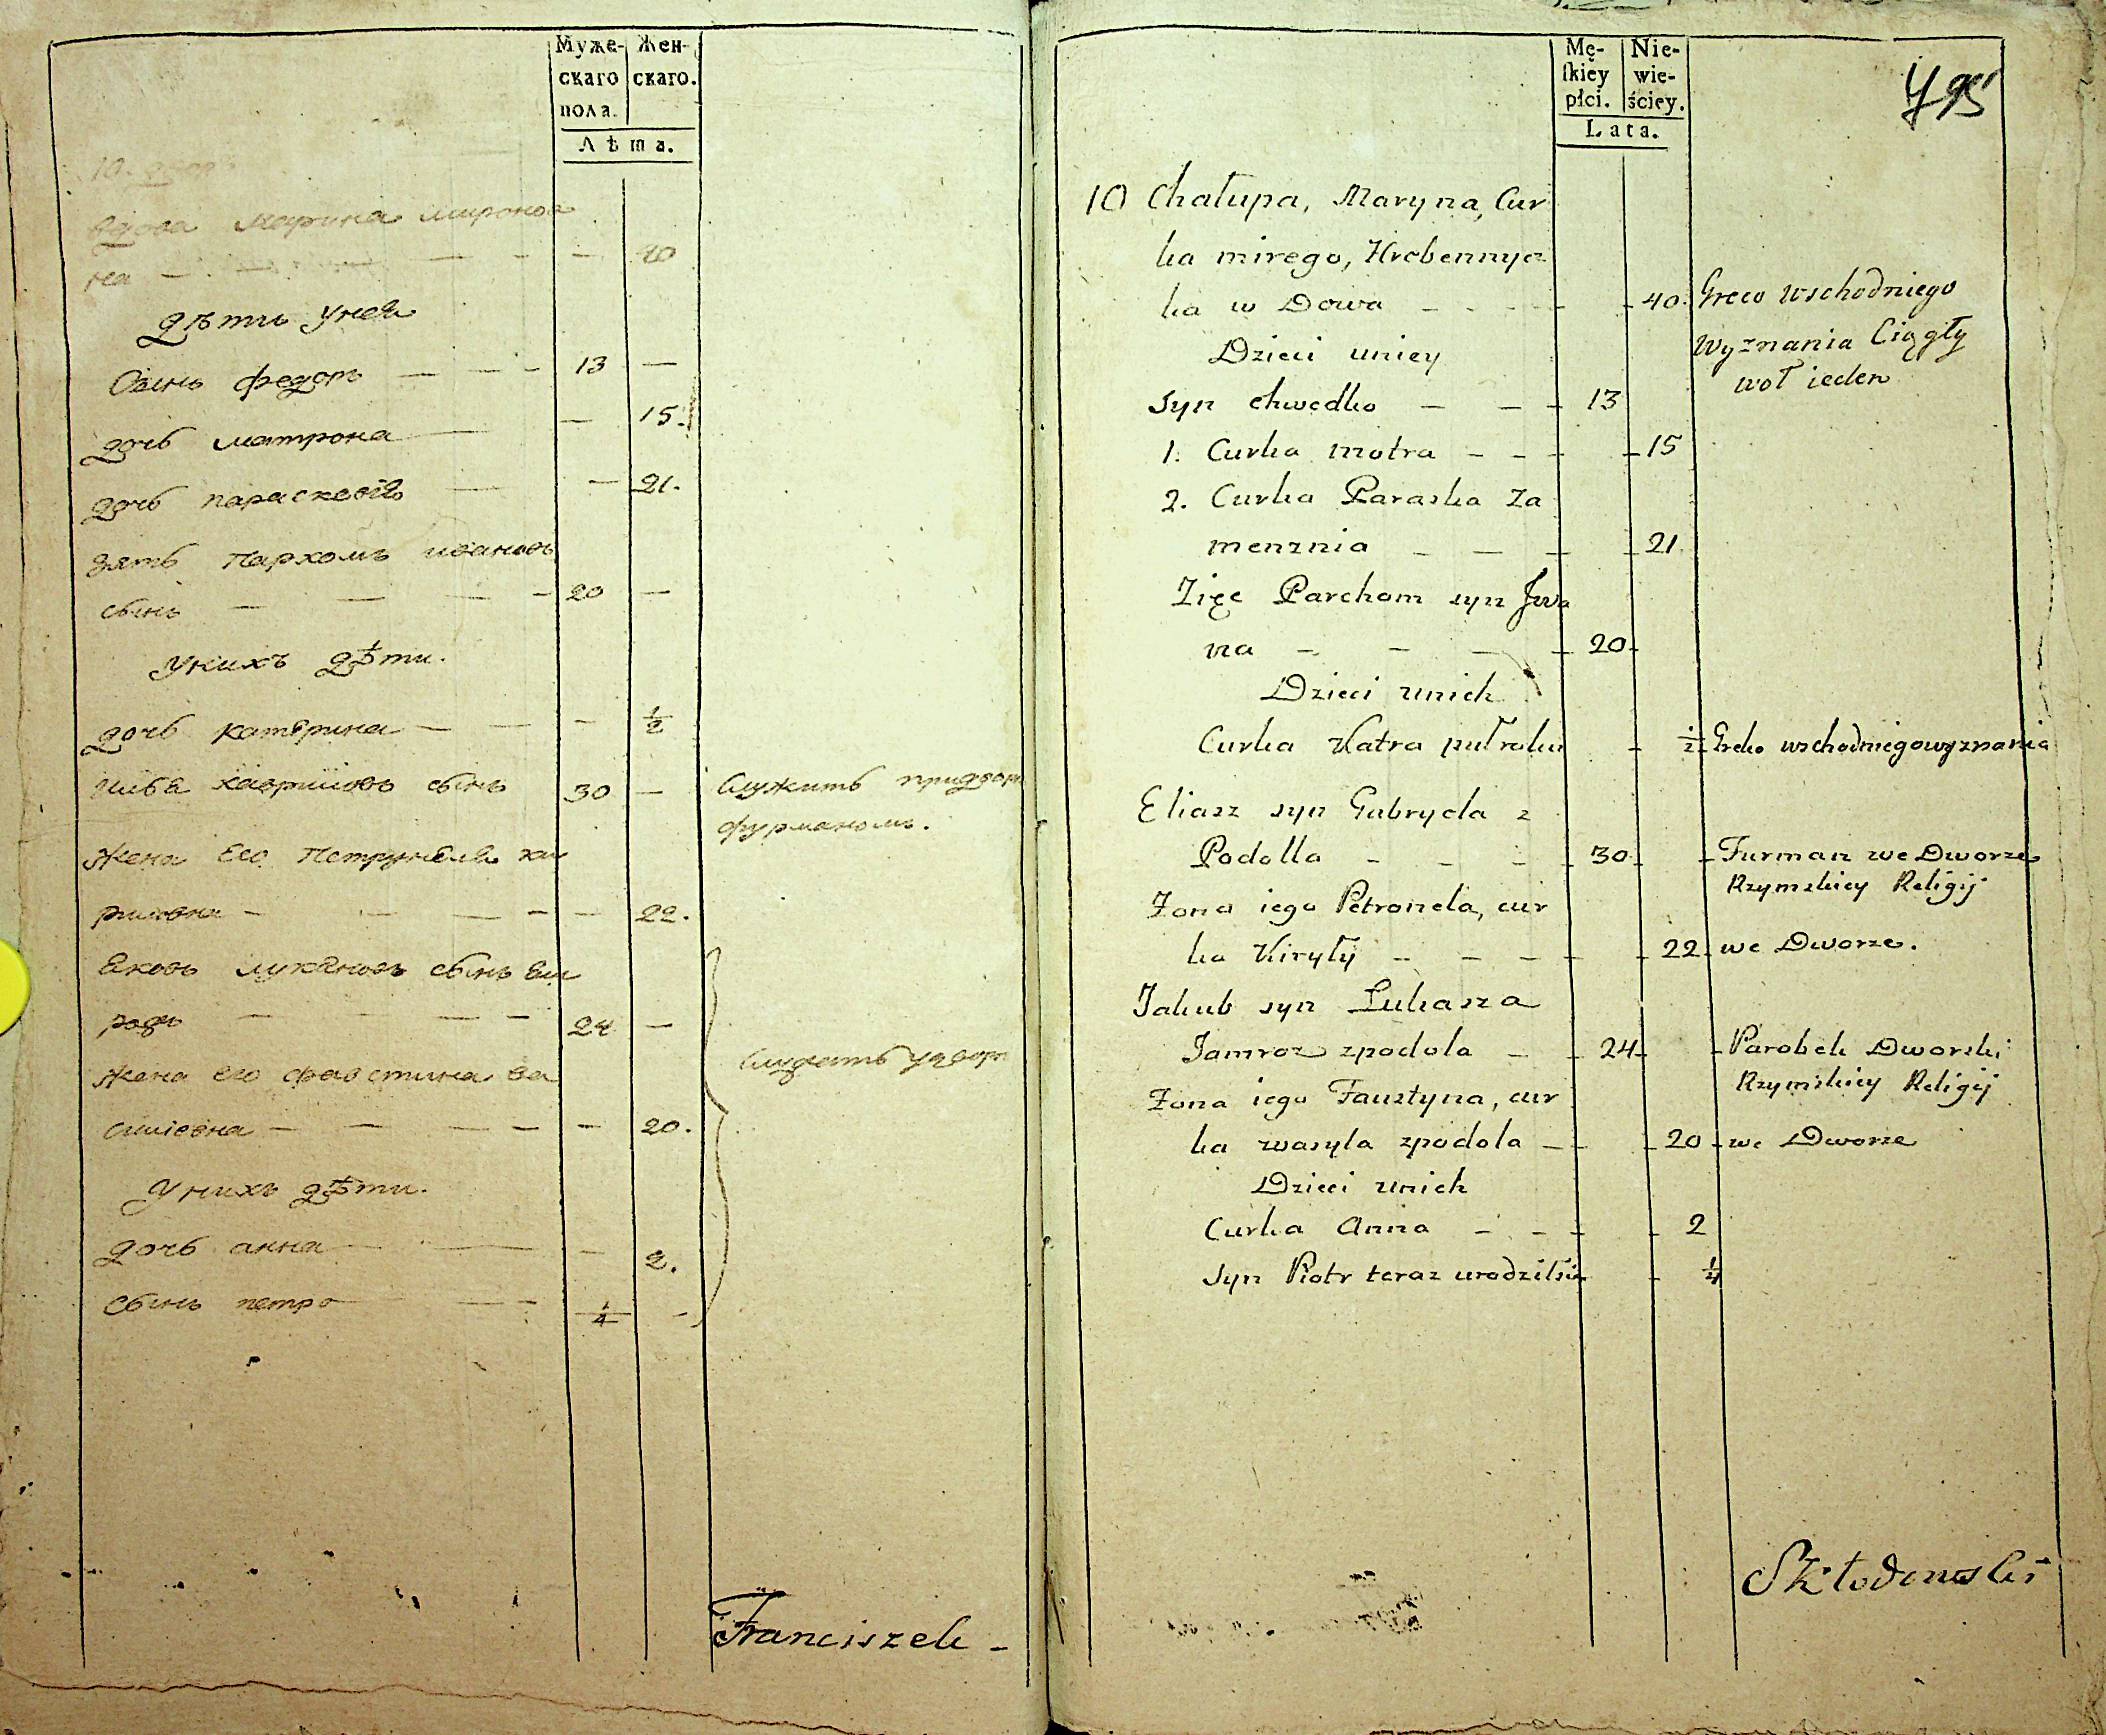 Муже- Жен-
скаго скаго.
пола.
Лѣта.
10. двор
вдова Марина миронов
на — — — — 40
дѣти унея
Сынъ федоръ — — — 13 —
дочь матрона — — 15.
дочь параскевія — — 21.
зять пархомъ ивановъ
сынъ — — — — 20 —
Унихъ дѣти.
дочь катерина — — — 1/2
хавриловъ сынъ 30 — Служитъ придвор
фурманомъ.
жена Его Петрунеля ки
риловна — — — — 22.
Яковъ лукяновъ сынъ
— — — — 24 —
жена его фавстина ва
силіевна — — — — 20.
Унихъ дѣти.
дочь анна — — — 2.
Сынъ петро — — 1/4 —
Franciszek -
Mę- Nie-
skiey wie-
płci. ściey.
Lata.
795
10 Chałupa, Maryna, Cur
ka mirego, Hrebennycz
ka w Dowa — — — 40. Greco wschodniego
Dzieci uniey Wyznania Ciągły
woł ieden
Syn chwedko — — — 13
1. Curka motra — — — 15
2. Curka Paraska Za
menznia — — — 21
Zięc Parcham syn Jwa
na — — — — 20
Dzieci unich
Curka Katra puł roku — 1/2 Greko wschodniego wyznania
Eliasz syn Gabryela z
Podolla — — — — 30 Furman we Dworze
Rzymskiey Religij
Zona iego Petronela, cur
ka Kiryły — — — — 22 we Dworze.
Jakub syn Lukasza
Jamroz zpodola — — 24 Parobek Dworski
Rzymskiey Religij
Zona iego Faustyna, cur
ka wasyla zpodola — — 20 we Dworze
Dzieci unich
Curka Anna — — — 2
Syn Piotr teraz urodziłsię — 1/4
Skłodowski